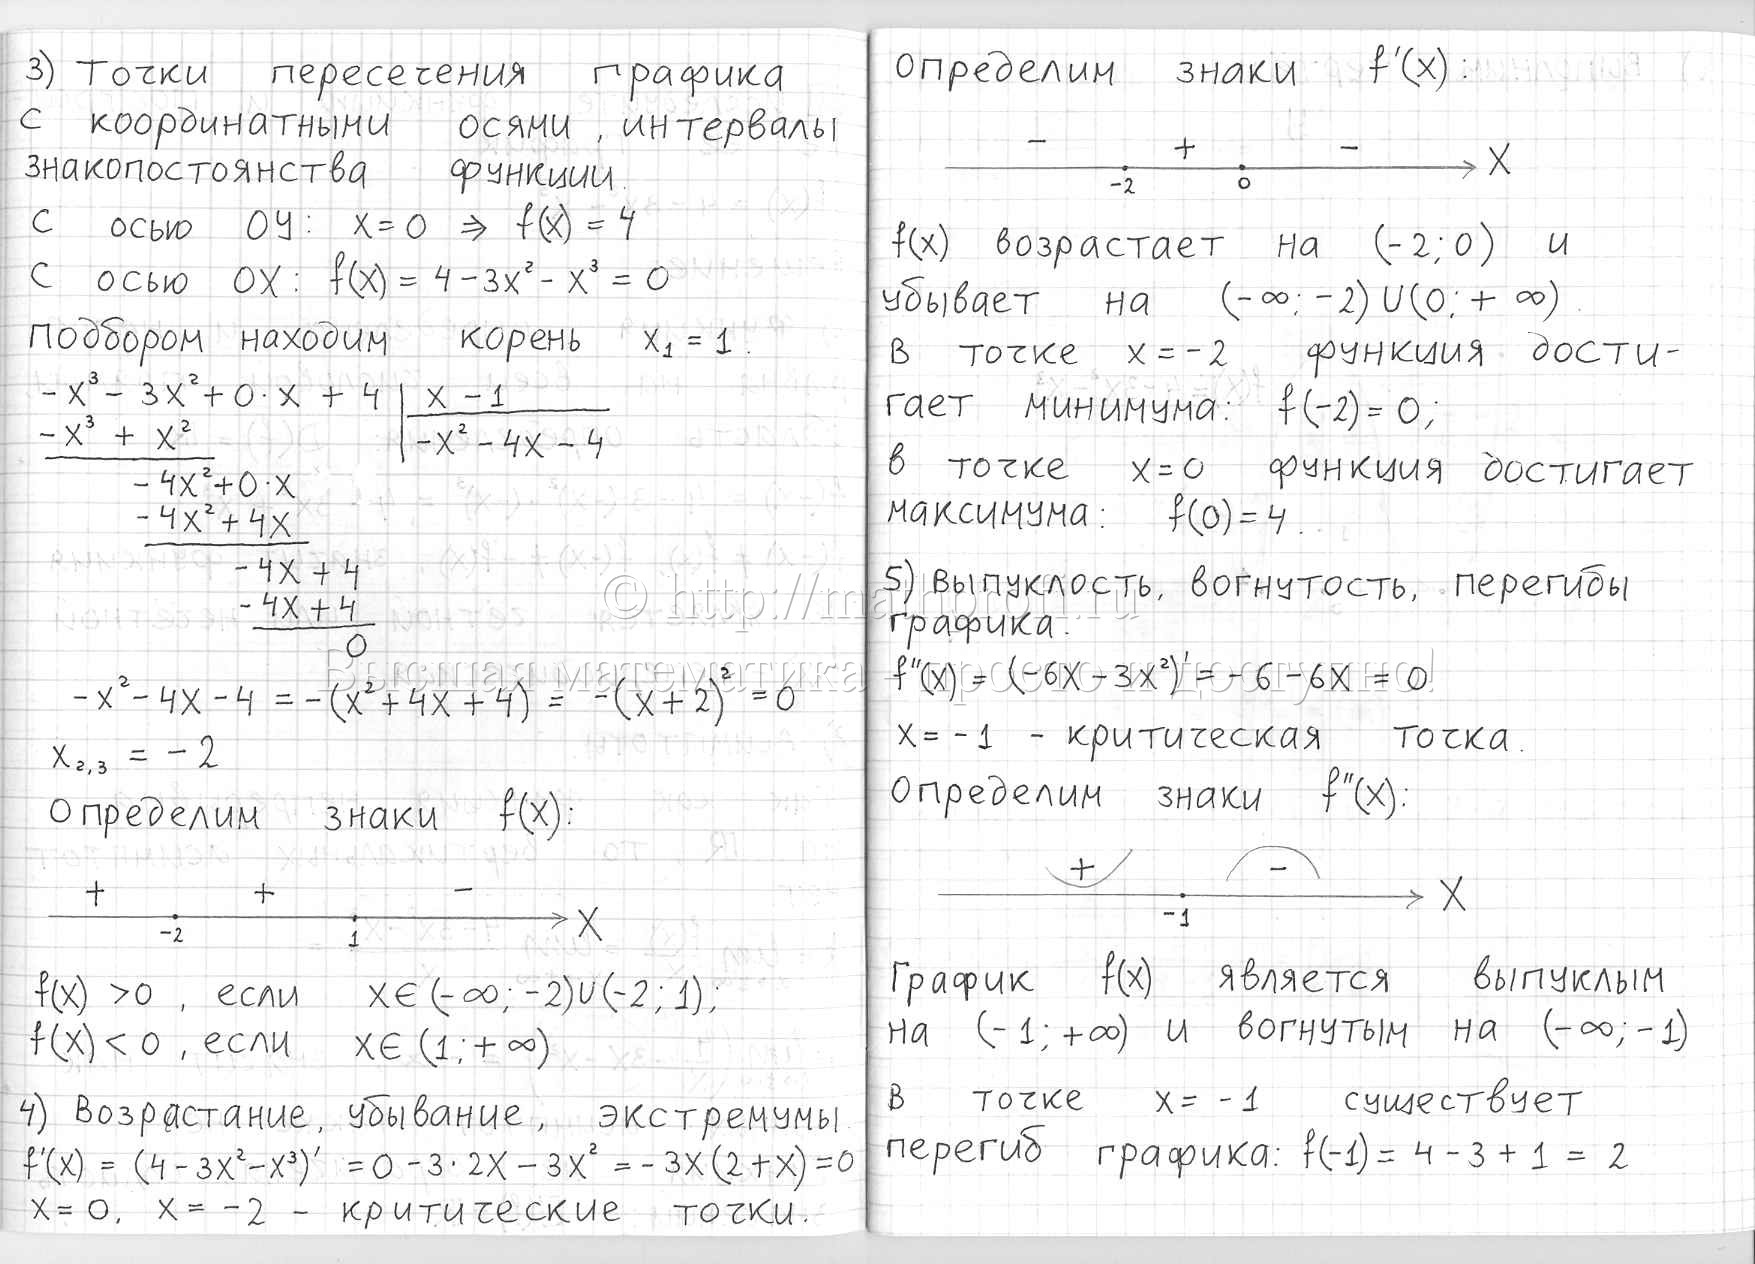 3) Точки пересечения графика
с координатными осями, интервалы
знакопостоянства функции.
С осью OY: x=0 ⇒ f(x) = 4
С осью OX: f(x) = 4 - 3x² - x³ = 0
Подбором находим корень x₁ = 1.
-x³ - 3x² + 0·x + 4 | x - 1
-x³ + x² | -x² - 4x - 4
-4x² + 0·x
-4x² + 4x
-4x + 4
-4x + 4
0
-x² - 4x - 4 = -(x² + 4x + 4) = -(x + 2)² = 0
x₂,₃ = -2
Определим знаки f(x):
+ + -
-2 1 X
f(x) > 0, если x∈(-∞; -2)∪(-2; 1);
f(x) < 0, если x∈ (1; +∞)
4) Возрастание, убывание, экстремумы.
f'(x) = (4 - 3x² - x³)' = 0 - 3·2x - 3x² = -3x(2+x) = 0
x = 0, x = -2 - критические точки.
Определим знаки f'(x):
- + -
-2 0 X
f(x) возрастает на (-2; 0) и
убывает на (-∞; -2)∪(0; +∞).
В точке x = -2 функция дости-
гает минимума: f(-2) = 0;
в точке x = 0 функция достигает
максимума: f(0) = 4.
5) Выпуклость, вогнутость, перегибы
графика.
f''(x) = (-6x - 3x²)' = -6 - 6x = 0
x = -1 - критическая точка.
Определим знаки f''(x):
+ -
-1 X
График f(x) является выпуклым
на (-1; +∞) и вогнутым на (-∞; -1)
В точке x = -1 существует
перегиб графика: f(-1) = 4 - 3 + 1 = 2
© http://mathprofi.ru
Высшая математика – просто и доступно!